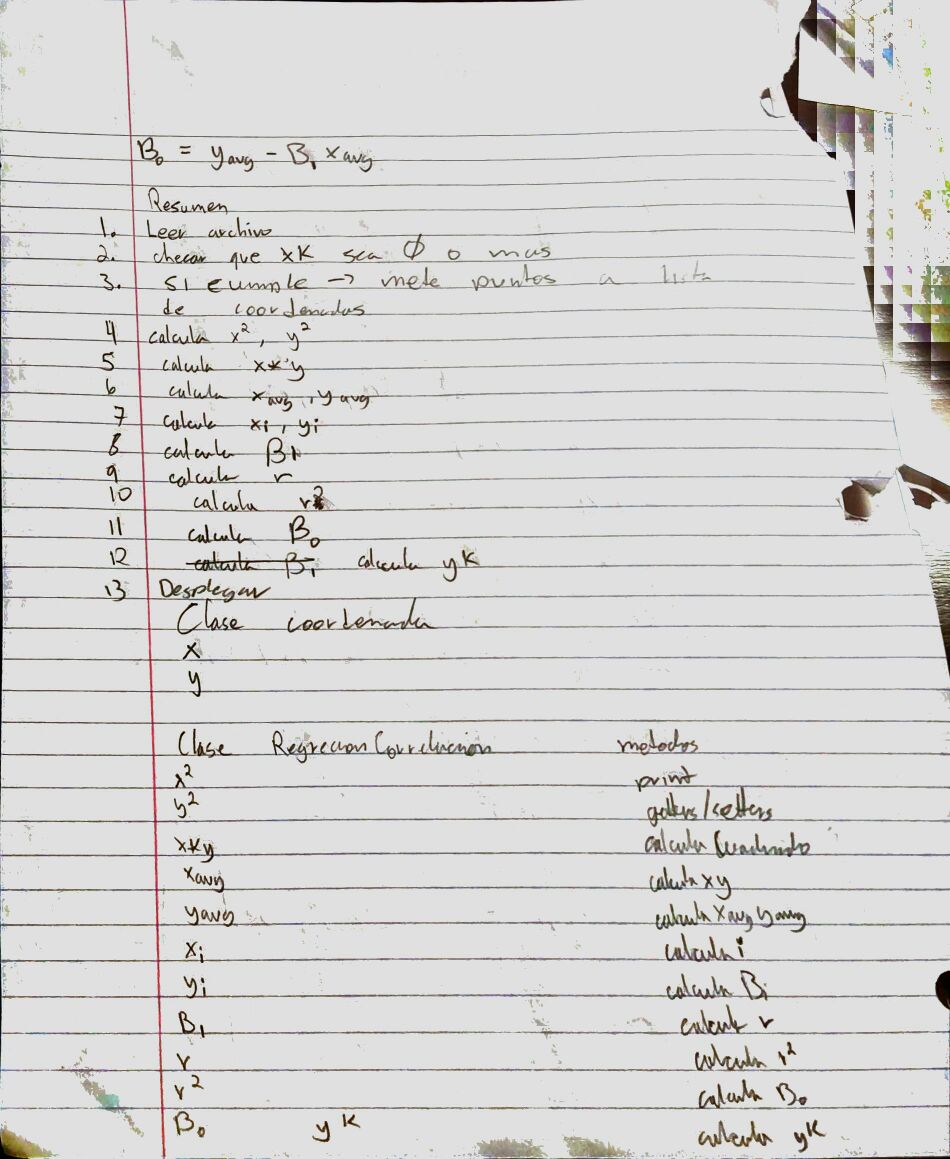 B₀ = yavg - B₁ xavg
Resumen
1. Leer archivo
2. checar que xK sea ∅ o mas
3. Si cumple -> mete puntos a lista
de coordenadas
4 calcula x², y²
5 calcula x*y
6 calcula xavg, yavg
7 calcula xi, yi
8 calcula B1
9 calcula r
10 calcula r²
11 calcula B₀
12 calcula B₁ calcula yK
13 Desplegar
Clase coordenada
x
y
Clase RegrecionCorrelacion metodos
x² print
y² getters/setters
x*y calcula Cuadrado
xavg calcula xy
yavg calcula xavg yavg
xi calcula i
yi calcula B₁
B₁ calcula r
r calcula r²
r² calcula B₀
B₀ yK calcula yK